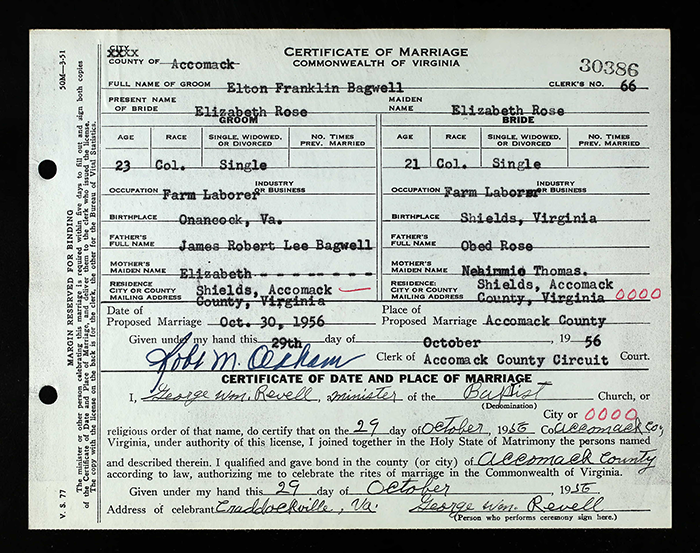 CITY
XXXX
COUNTY OF Accomack
CERTIFICATE OF MARRIAGE
COMMONWEALTH OF VIRGINIA
30386
FULL NAME OF GROOM Elton Franklin Bagwell CLERK'S NO. 66
PRESENT NAME OF BRIDE Elizabeth Rose MAIDEN NAME Elizabeth Rose
GROOM BRIDE
AGE RACE SINGLE, WIDOWED, OR DIVORCED NO. TIMES PREV. MARRIED AGE RACE SINGLE, WIDOWED, OR DIVORCED NO. TIMES PREV. MARRIED
23 Col. Single 21 Col. Single
OCCUPATION Farm Laborer INDUSTRY OR BUSINESS OCCUPATION Farm Laborer INDUSTRY OR BUSINESS
BIRTHPLACE Onancock, Va. BIRTHPLACE Shields, Virginia
FATHER'S FULL NAME James Robert Lee Bagwell FATHER'S FULL NAME Obed Rose
MOTHER'S MAIDEN NAME Elizabeth - - - - - - - - MOTHER'S MAIDEN NAME Thomas.
RESIDENCE CITY OR COUNTY MAILING ADDRESS Shields, Accomack County, Virginia RESIDENCE CITY OR COUNTY MAILING ADDRESS Shields, Accomack County, Virginia 0000
Date of Proposed Marriage Oct. 30, 1956 Place of Proposed Marriage Accomack County
Given under my hand this 29th day of October , 19 56
Robt M. Oldham Clerk of Accomack County Circuit Court.
CERTIFICATE OF DATE AND PLACE OF MARRIAGE
I, George Wm. Revell, a minister of the Baptist Church, or
(Denomination)
City or 0000
religious order of that name, do certify that on the 29 day of October, 1956 Co. Accomack Co,
Virginia, under authority of this license, I joined together in the Holy State of Matrimony the persons named
and described therein. I qualified and gave bond in the county (or city) of Accomack County
according to law, authorizing me to celebrate the rites of marriage in the Commonwealth of Virginia.
Given under my hand this 29 day of October 1956
Address of celebrant Craddockville, Va. George Wm. Revell
(Person who performs ceremony sign here.)
50M—3-51
V. S. 77
MARGIN RESERVED FOR BINDING
The minister or other person celebrating this marriage is required within five days to fill out and sign both copies
of the Certificate of Date and Place of Marriage, and deliver them to the clerk who issued the license.
The copy with the license on the back is for the clerk, the other for the Bureau of Vital Statistics.